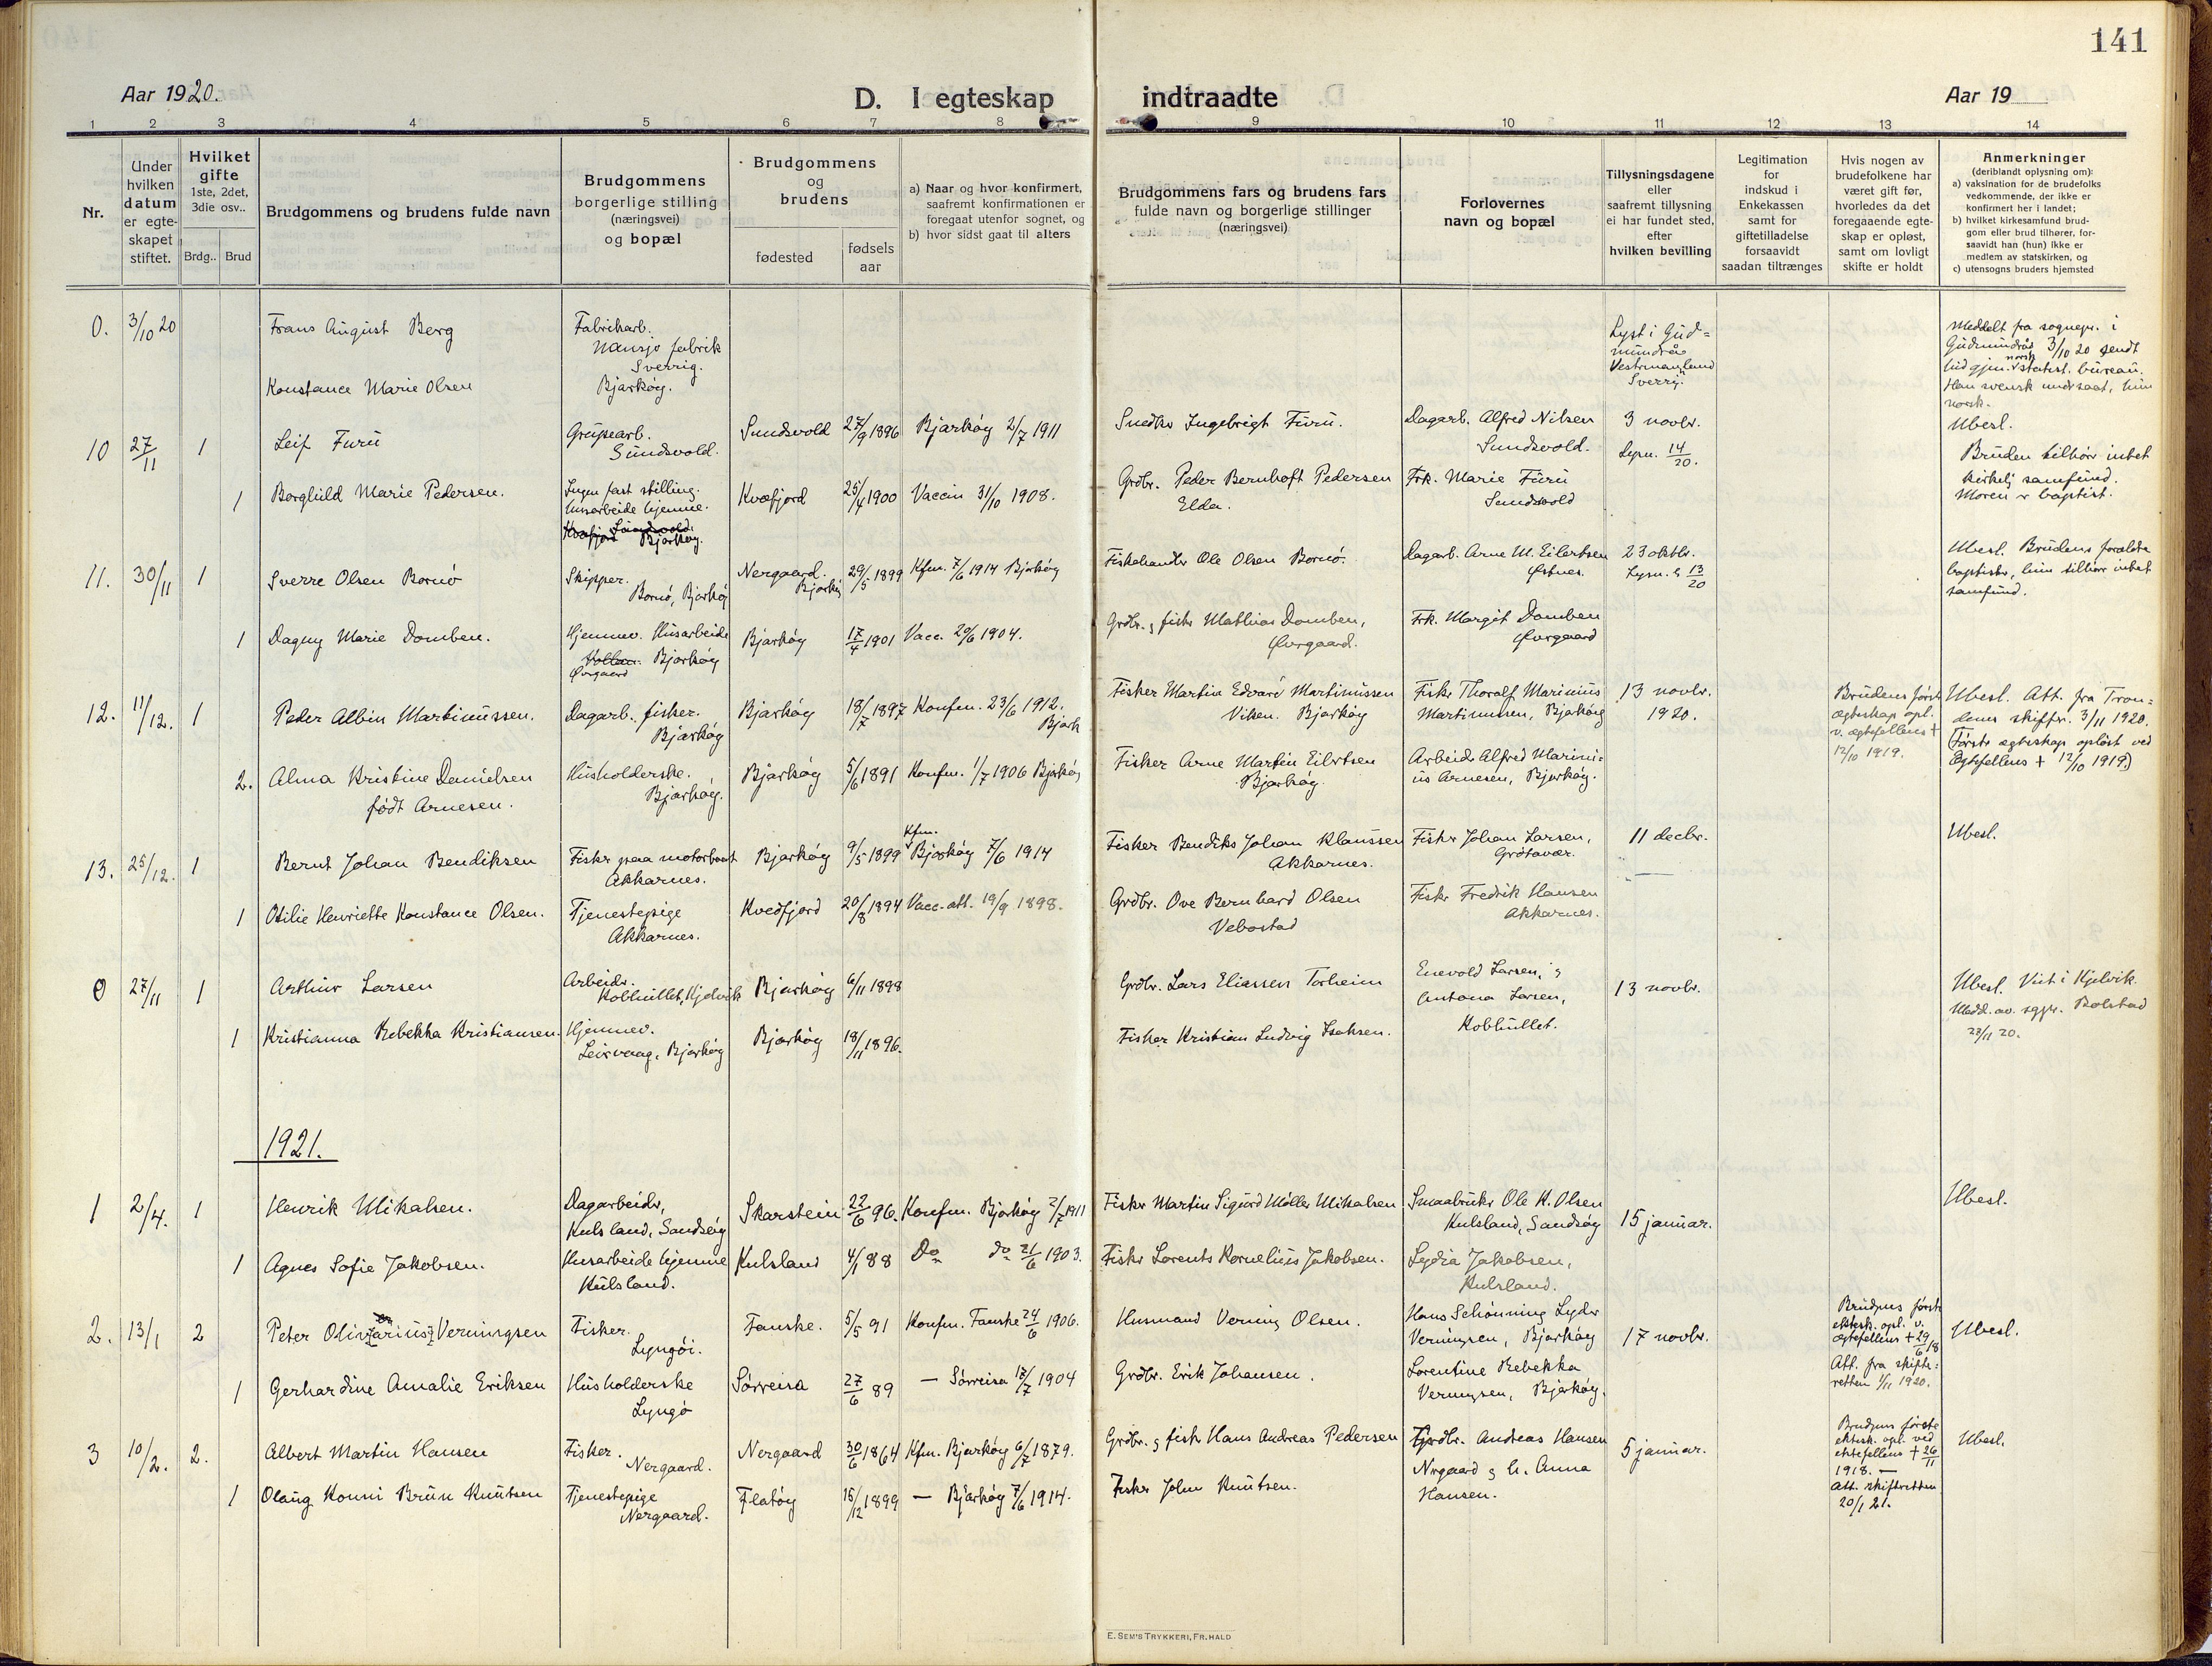 141
Aar 1920.
D. I egteskap indtraadte
Aar 19
1 2 3 4 5 6 7 8 9 10 11 12 13 14
Nr.
Under
hvilken
datum
er egte-
skapet
stiftet.
Hvilket
gifte
1ste, 2det,
3die osv..
Brdg.. Brud
Brudgommens og brudens fulde navn
Brudgommens
borgerlige stilling
(næringsvei)
og bopæl
Brudgommens
og
brudens
fødested
fødsels
aar
a) Naar og hvor konfirmert,
saafremt konfirmationen er
foregaat utenfor sognet, og
b) hvor sidst gaat til alters
Brudgommens fars og brudens fars
fulde navn og borgerlige stillinger
(næringsvei)
Forlovernes
navn og bopæl
Tillysningsdagene
eller
saafremt tillysning
ei har fundet sted,
efter
hvilken bevilling
Legitimation
for
indskud i
Enkekassen
samt for
giftetilladelse
forsaavidt
saadan tiltrænges
Hvis nogen av
brudefolkene har
været gift før,
hvorledes da det
foregaaende egte-
skap er opløst,
samt om lovligt
skifte er holdt
Anmerkninger
(deriblandt oplysning om):
a) vaksination for de brudefolks
vedkommende, der ikke er
konfirmert her i landet;
b) hvilket kirkesamfund brud-
gom eller brud tilhører, for-
saavidt han (hun) ikke er
medlem av statskirken, og
c) utensogns bruders hjemsted
0. 3/10 20 Frans August Berg
Fabrikarb.
Nansjo fabrik
Sverrig.
Lyst i Gud-
mundrå
Vestmanland
Sverrig.
Meddelt fra sognepr. i
Gudmundrå 3/10 20 sendt
hid gjen. norsk statist. bureau.
Han svensk undersaat, hun
norsk.
Konstance Marie Olsen
Bjarkøy.
10 27/11 1 Leif Furu
Grubearb.
Sundsvold.
Sundsvold 27/9 1896 Bjarkøy 2/7 1911
Snedker Ingebrigt Furu.
Dagarb. Alfred Nilsen
Sundsvold.
3 novbr.
Lysn. 14/20.
Ubesl.
Bruden tilhører intet
kirkelj samfund.
Moren er baptist.
1 Borghild Marie Pedersen.
Ingen fast stilling.
husarbeide hjemme.
Bjarkøy.
Kvæfjord 25/4 1900 Vaccin 31/10 1908.
Grdbr. Peder Bernhoft Pedersen
Elda.
Frk. Marie Furu
Sundsvold
11. 30/11 1 Sverre Olsen Bornø
Skipper.
Bornø, Bjarkøy
Nergaard.
Bjarkøy
29/5 1899 Kfm. 7/6 1914 Bjarkøy
Fiskehandler Ole Olsen Bornø.
Dagarb. Arne M. Eilertsen
Østnes.
23 oktbr.
Lysn. 13/20
Ubesl. Brudens forældre
baptister, hun tilhører intet
samfund.
1 Dagny Marie Domben.
Hjemmev. Husarbeide
Vollan. Bjarkøy
Øvrgaard
Bjarkøy 17/4 1901 Vacc. 20/6 1904.
Grdbr. & fisker Mathias Domben,
Øvrgaard.
Frk. Margit Domben
Øvrgaard
12. 11/12. 1 Peder Albin Martinussen.
Dagarb., fisker.
Bjarkøy
Bjarkøy 18/7 1897 Konfm. 23/6 1912.
Bjark
Fisker Martin Edvard Martinussen
Viken. Bjarkøy
Fisker Thoralf Marinius
Martinussen, Bjarkøy
13 novbr.
1920.
Brudens først
ægteskap opl.
v. ægtefellens †
12/10 1919.
Ubesl. Att. fra Tron-
denes skiftr. 3/11 1920.
(Første ægteskap opløst ved
Egtefellens † 12/10 1919.)
2. Alma Kristine Danielsen
født Arnesen.
Husholderske.
Bjarkøy.
Bjarkøy 5/6 1891 Konfm. 1/7 1906 Bjarkøy
Fisker Arne Martin Eilertsen
Bjarkøy.
Arbeider Alfred Marini-
us Arnesen, Bjarkøy.
13. 25/12. 1 Bernt Johan Bendiksen
Fisker paa motorbaat
Akkarnes.
Bjarkøy 9/5 1899 Kfm. Bjarkøy 7/6 1914
Fisker Bendiks Johan Klaussen
Akkarnes.
Fisker Johan Larsen,
Grøtavær.
11 decbr.
Ubesl.
1 Otilie Henriette Konstance Olsen.
Tjenestepige
Akkarnes.
Kvedfjord 20/8 1894 Vacc. att. 19/9 1898.
Grdbr. Ove Bernhard Olsen
Vebostad
Fisker Fredrik Hansen
Akkarnes.
0 27/11 1 Arthur Larsen
Arbeider.
Kobhullet, Kjelvik
Bjarkøy 6/11 1898
Grdbr. Lars Eliassen Torheim
Enevold Larsen, &
Antona Larsen,
Kobhullet.
13 novbr.
Ubesl. Viet i Kjelvik.
Medd. av. sgpr. Bolstad
27/11 20.
1 Kristianna Rebekka Kristiansen.
Hjemmev.
Leirvaag, Bjarkøy
Bjarkøy 18/11 1896.
Fisker Kristian Ludvig Isaksen.
1921.
1 2/4. 1 Henrik Mikalsen.
Dagarbeider,
Kulsland, Sandsøy
Skarstein 22/6 96. Konfm. Bjarkøy 2/7 1911
Fisker Martin Sigurd Møller Mikalsen
Smaabruker Ole K. Olsen
Kulsland, Sandsøy
15 januar.
Ubesl.
1 Agnes Sofie Jakobsen.
Husarbeide hjemme
Kulsland.
Kulsland 4/1 88 Do do 21/6 1903.
Fisker Lorents Kornelius Jakobsen.
Lydia Jakobsen,
Kulsland.
2. 13/1 2 Peter Olivarius Verningsen
Fisker.
Lyngøi.
Fauske. 5/5 91 Konfm. Fauske 24/6 1906.
Husmand Verning Olsen.
Hans Schønning Lyder
Verningsen, Bjarkøy
17 novbr.
Brudgms først
ektesk. opl. v.
ægtefellens † 29/6 18
Att. fra skifte-
retten 1/11 1920.
Ubesl.
1 Gerhardine Amalie Eriksen
Husholderske
Lyngø
Sørreisa 27/6 89 — Sørreisa 17/7 1904
Grdbr. Erik Johansen.
Lorentine Rebekka
Verningsen, Bjarkøy.
3 10/2. 2. Albert Martin Hansen
Fisker.
Nergaard.
Nergaard 30/6 1864 Kfm. Bjarkøy 6/7 1879.
Grdbr. & fisk Hans Andreas Pedersen
Grdbr. Andreas Hansen
Nergaard & h. Anna
Hansen.
5 januar.
Brudgms første
ektesk. opl. ved
ektefellens † 26/11
1918. —
Att. skifteretten
20/1 21.
Ubesl.
1 Olaug Konni Brun Knutsen
Tjenestepige
Nergaard.
Flatøy 15/12 1899 — Bjarkøy 7/6 1914.
Fisker John Knutsen.
E. SEM'S TRYKKERI, FR.HALD